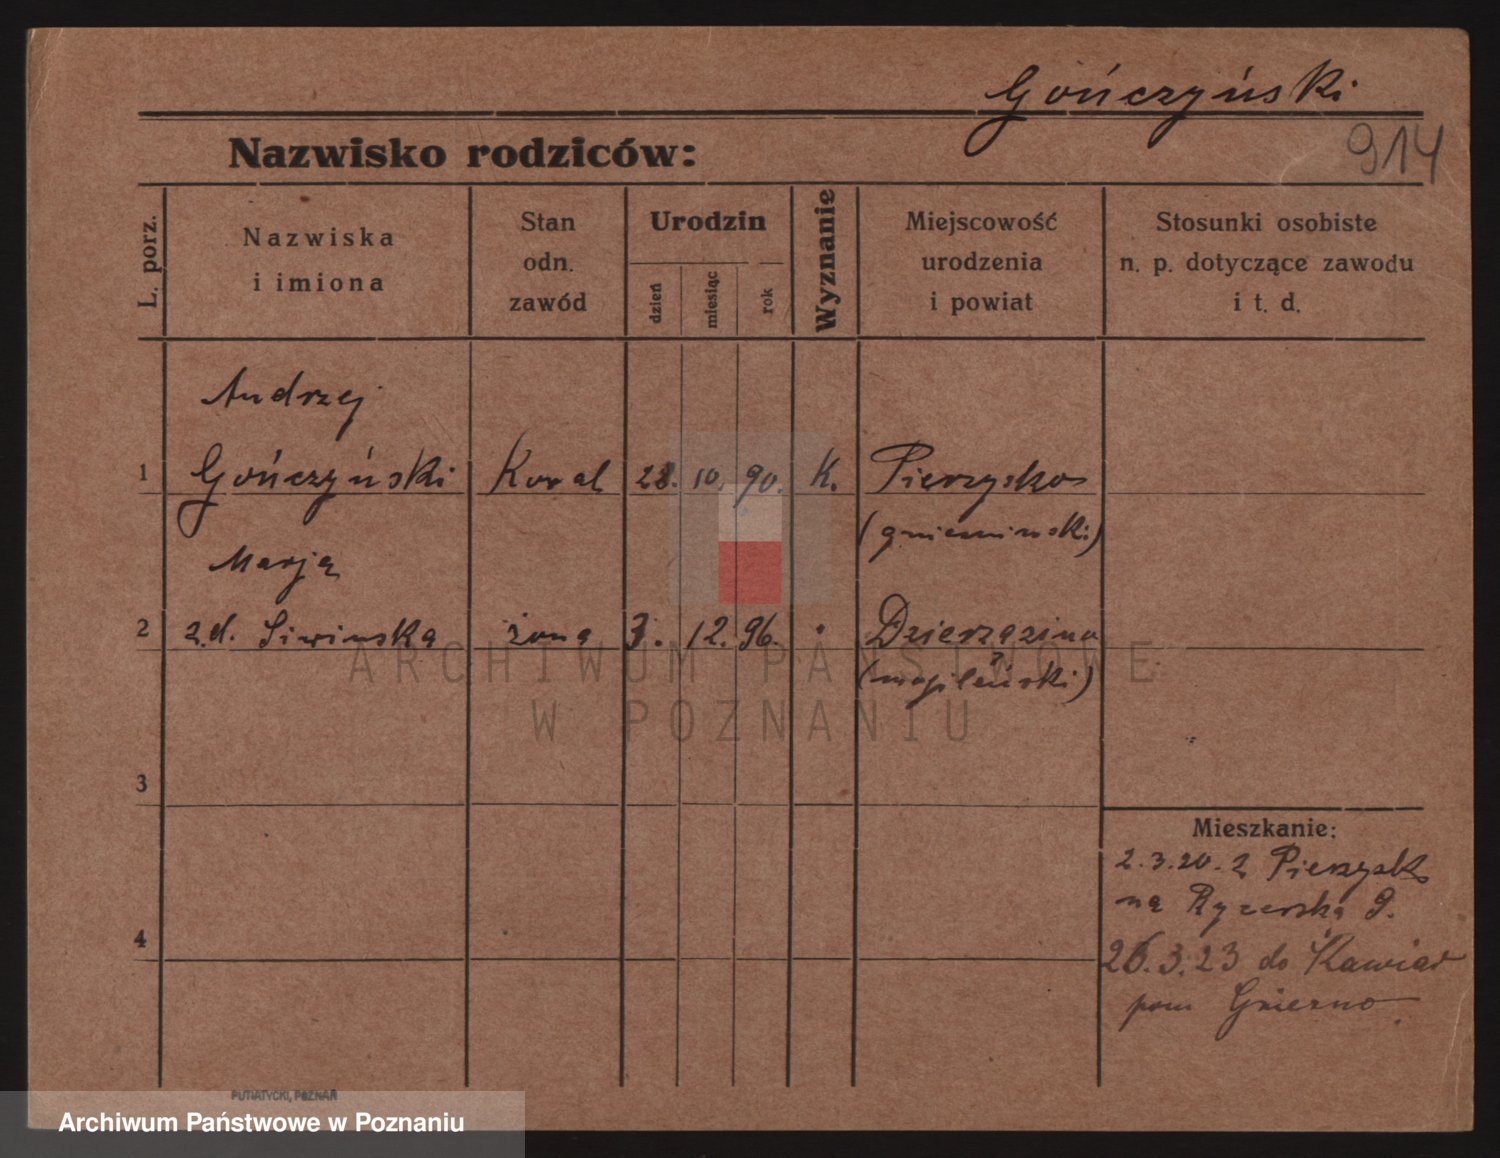 Gończyński
914
Nazwisko rodziców:
L. porz.
Nazwiska
i imiona
Stan
odn.
zawód
Urodzin
dzień
miesiąc
rok
Wyznanie
Miejscowość
urodzenia
i powiat
Stosunki osobiste
n. p. dotyczące zawodu
i t. d.
Andrzej
1 Gończyński Kowal 28. 10. 90. K. Pierzyska
(gnieźnieński)
Marja
2 z.d. Siwinska żona 3. 12. 96. Dzierzązno
(mogileński)
3
Mieszkanie:
2.3.20. z Pierzysk
na Rycerską 9.
4
26.3.23 do Kawiar
pow Gniezno.
ARCHIWUM PAŃSTWOWE
W POZNANIU
PUTIATYCKI, POZNAŃ
Archiwum Państwowe w Poznaniu